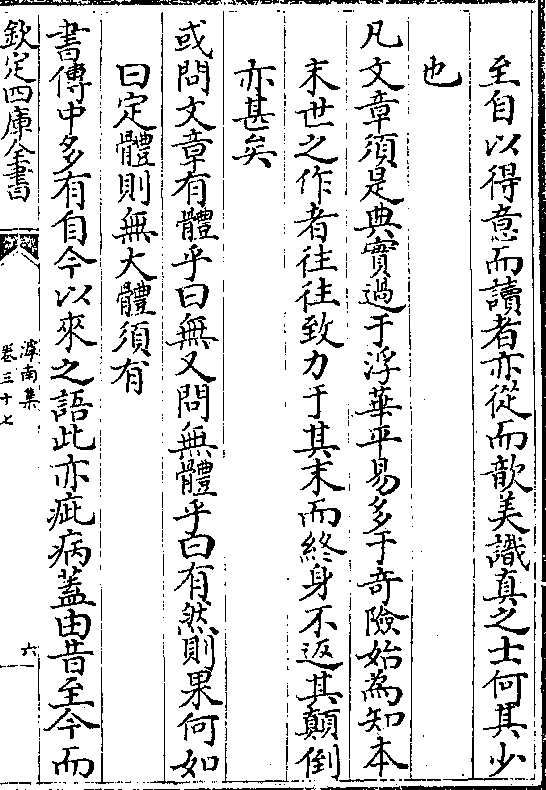 至自以得意而讀者亦從而歆美識真之士何其少
也
凡文章須是典實過于浮華平易多于奇險始為知本
末世之作者往往致力于其末而終身不返其顛倒
亦甚矣
或問文章有體乎曰無又問無體乎曰有然則果何如
曰定體則無大體須有
書傳中多有自今以來之語此亦疵病蓋由昔至今而
欽定四庫全書
滹南集
卷三十七
六